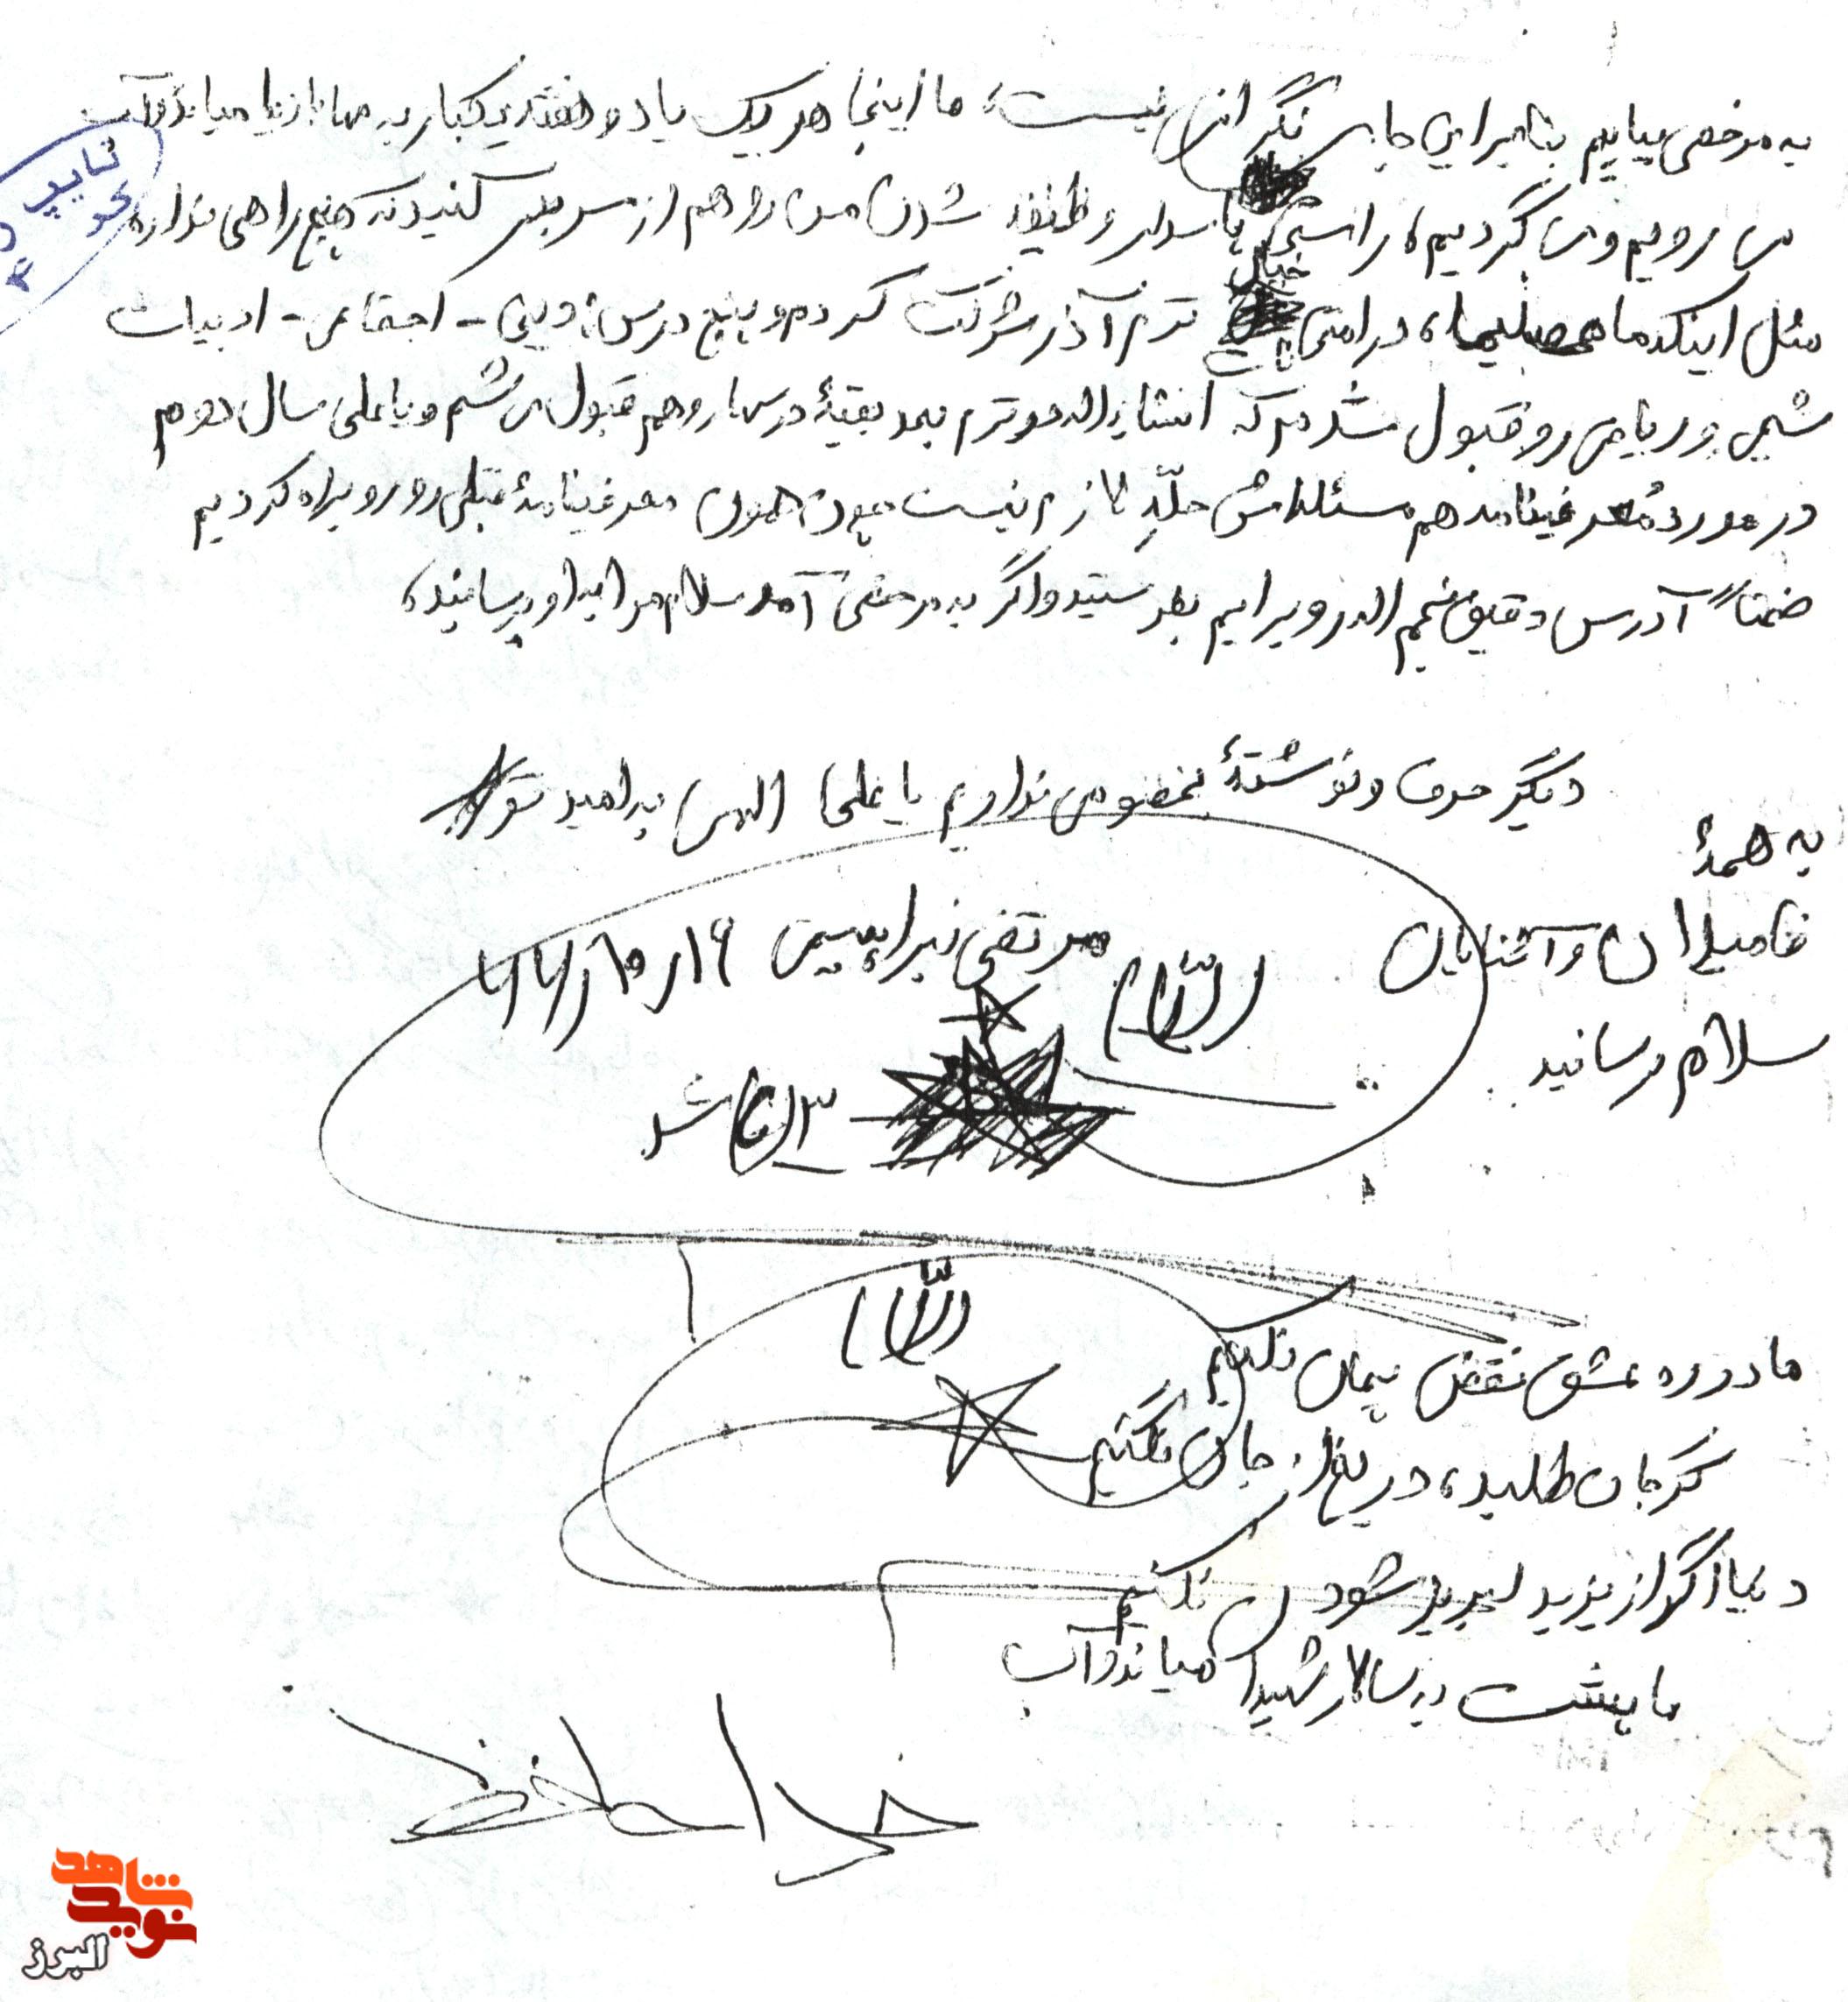 به مرخصی بیاییم بنابراین جای نگرانی نیست، ما اینجا هر یک یا دو هفته یکبار به مهاباد یا میاندوآب
می رویم و می گردیم، راستی پاسدار وظیفه شدن من را هم از سر بدر کنید که هیچ راهی نداره
خیال
مثل اینکه ما، در امتحانات ترم آذر شرکت کردم و پنج درس: دینی - اجتماعی - ادبیات
شیمی و ریاضی رو قبول شدم که انشاءالله دو ترم بعد بقیهٔ درسها رو هم قبول می شم و یا علی سال دوم
در مورد معرفینامه هم مسئله‌اش حلّه لازم نیست چون همون معرفینامهٔ قبلی رو روبراه کردیم
ضمناً آدرس دقیق نجم الدین رو برایم بفرستید و اگر به مرخصی آمد سلام مرا به او برسانید،
دیگر حرف و نوشتهٔ بخصوصی ندارم یا علی الهی به امید تو
به همهٔ
فامیلان و آشنایان
سلام برسانید
مرتضی ۱۶ر۱۰ر
الله
امضا شد
الله
ما در ره عشق نقض پیمان نکنیم
گر جان طلبد، دریغ از جان نکنیم
دنیا اگر از یزید لبریز شود
ما پشت به سالار شهیدان نکنیم
میاندوآب
خداحافظ
تایپ
شاهد
نوید
البرز